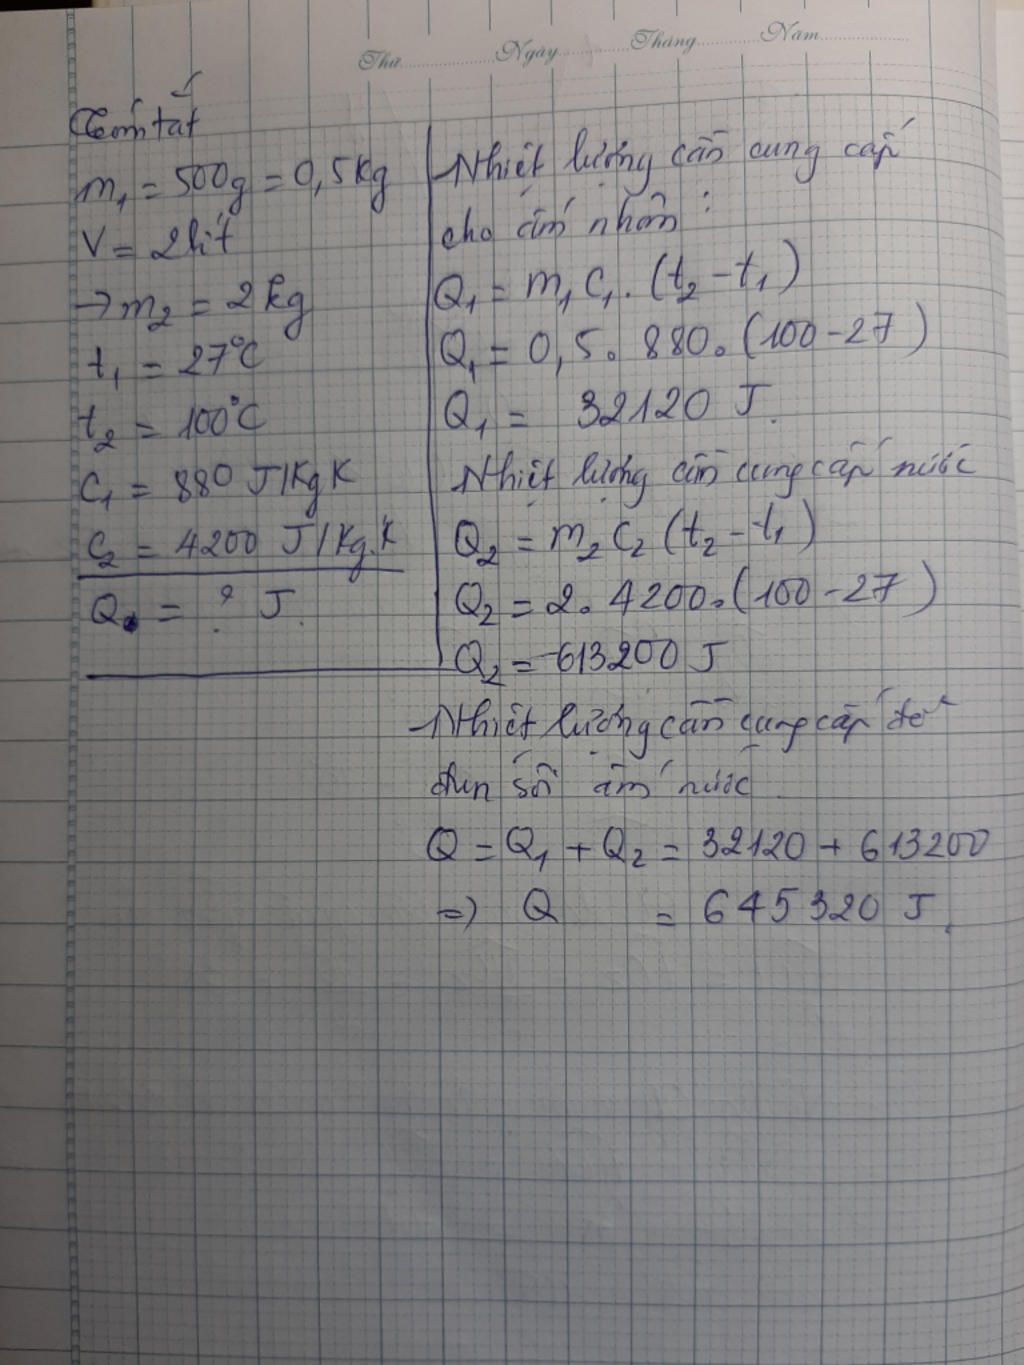 Thứ Ngày Tháng Năm
Tóm tắt
m₁ = 500g = 0,5Kg
V = 2 lít
→ m₂ = 2kg
t₁ = 27°C
t₂ = 100°C
C₁ = 880 J/Kg K
C₂ = 4200 J/Kg.K
Q = ? J.
Nhiệt lượng cần cung cấp
cho ấm nhôm :
Q₁ = m₁ C₁. (t₂ - t₁)
Q₁ = 0,5. 880. (100 - 27)
Q₁ = 32120 J.
Nhiệt lượng cần cung cấp nước
Q₂ = m₂ C₂ (t₂ - t₁)
Q₂ = 2. 4200. (100 - 27)
Q₂ = 613200 J
Nhiệt lượng cần cung cấp để
đun sôi ấm nước
Q = Q₁ + Q₂ = 32120 + 613200
=) Q = 645320 J.